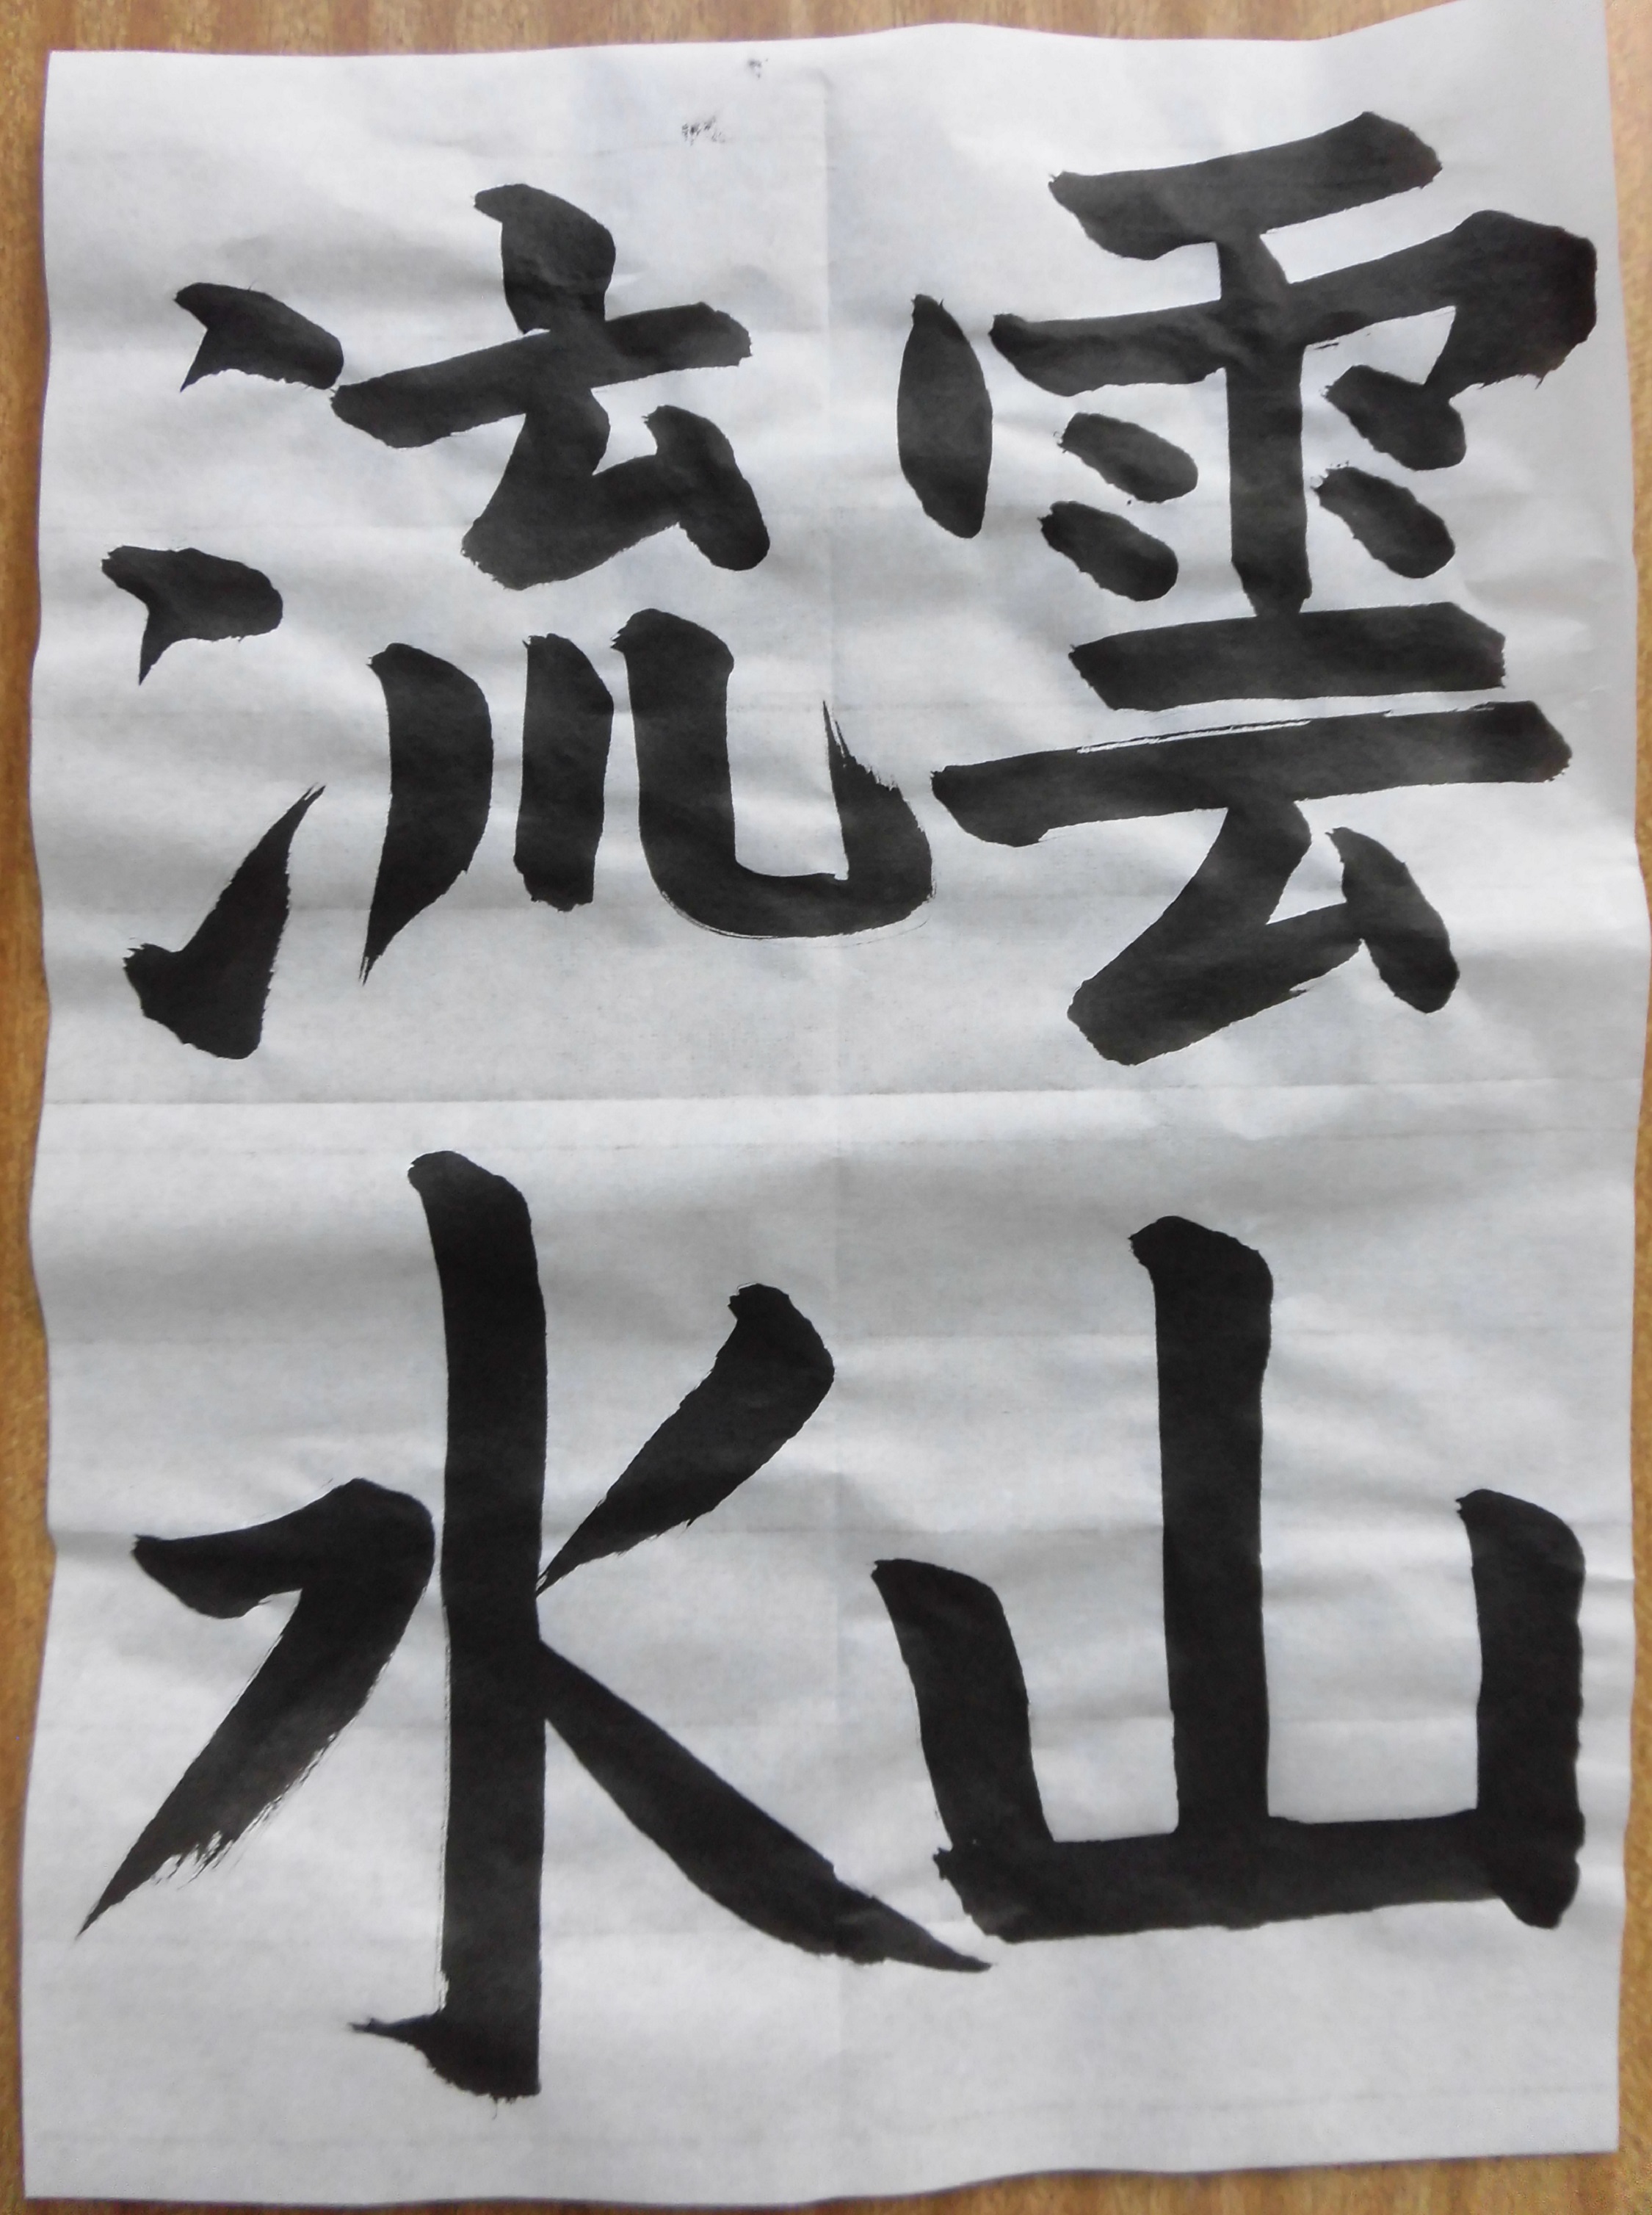 雲山
流水